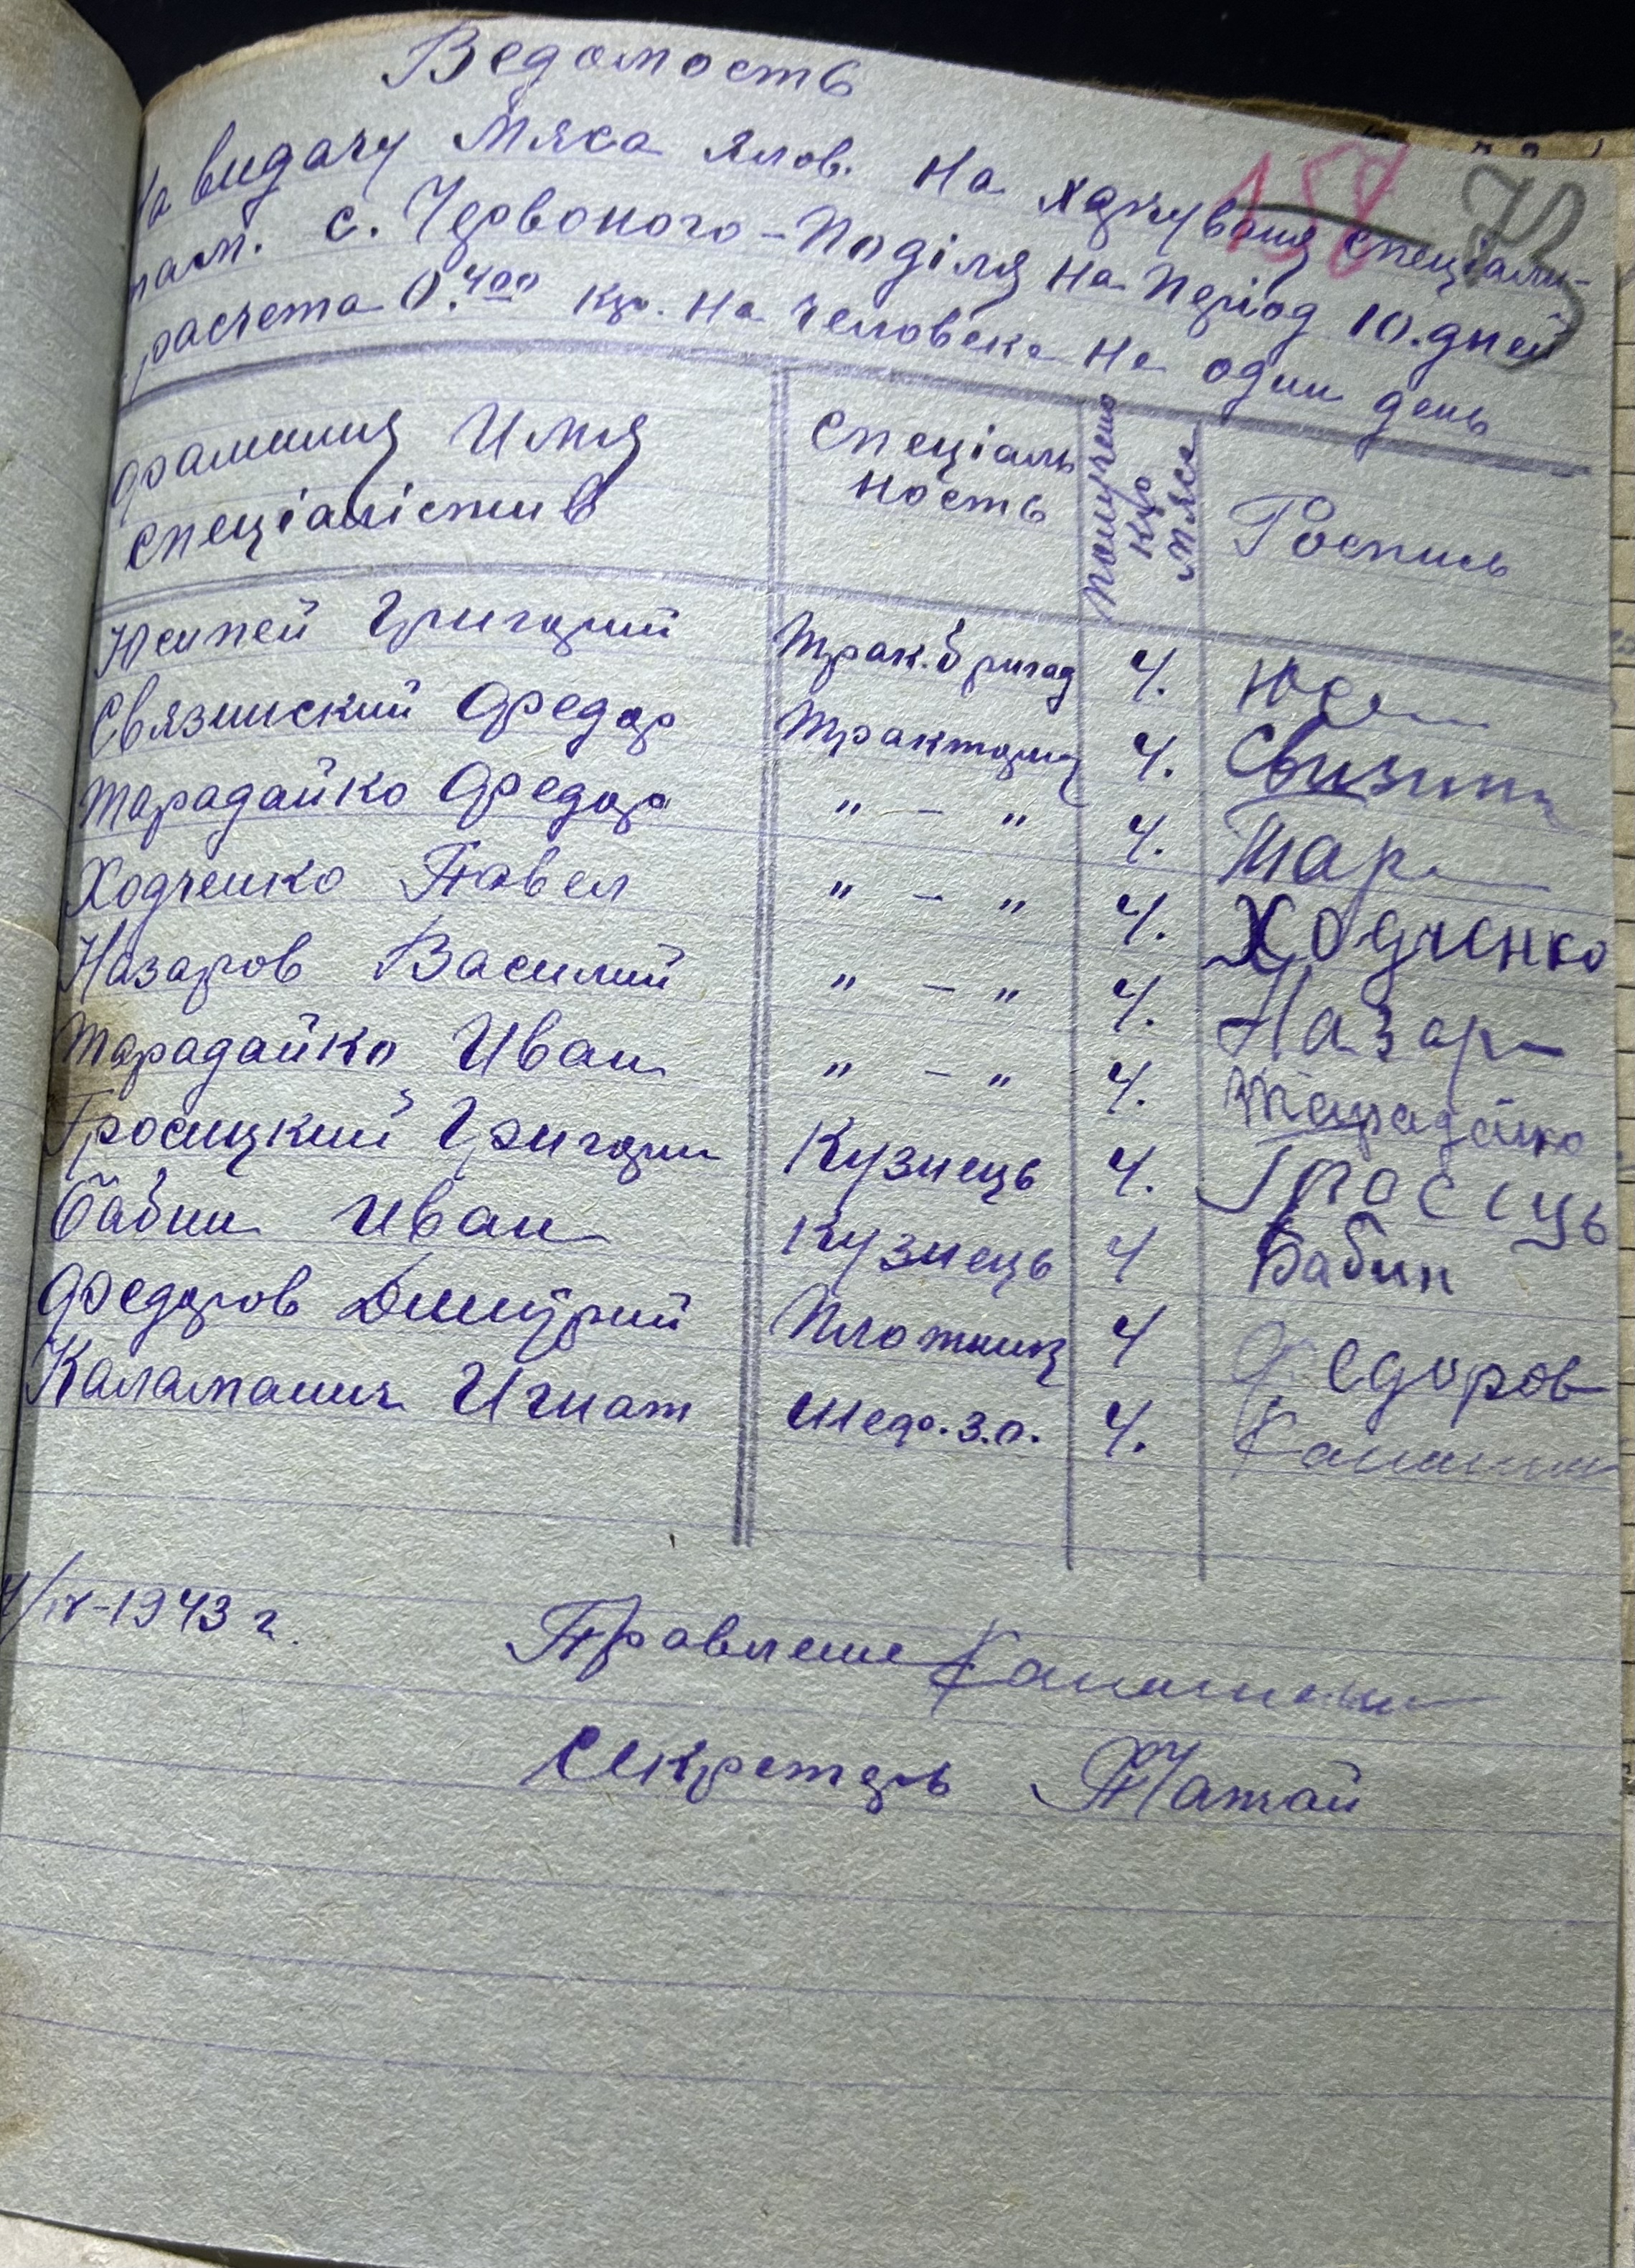 Ведомость
158 73
На видачу Мяса ялов. на харчуваня спеціалі-
стам. с. Червоного-Поділя на період 10. дней
расчета 0.400 кгр. на человека на один день
фамилия Имя спеціалістив Спеціаль ность получено кгр мяса Роспись
Юсипей Григорий Трак. бригад 4. Юс
Связинский Федор Тракторис 4. Свизин
Тарадайко Федор " - " 4. Тара
Ходченко Павел " - " 4. Ходченко
Назаров Василий " - " 4. Назар
Тарадайко Иван " - " 4. Тарадайко
Гросицкий Григори Кузнець 4. Гроссиць
Бабин Иван Кузнець 4 Бабин
Федоров Дмитрий Плотник 4 Федоров
Игнат 4.
/IV-1943 г. Правление
Секретарь